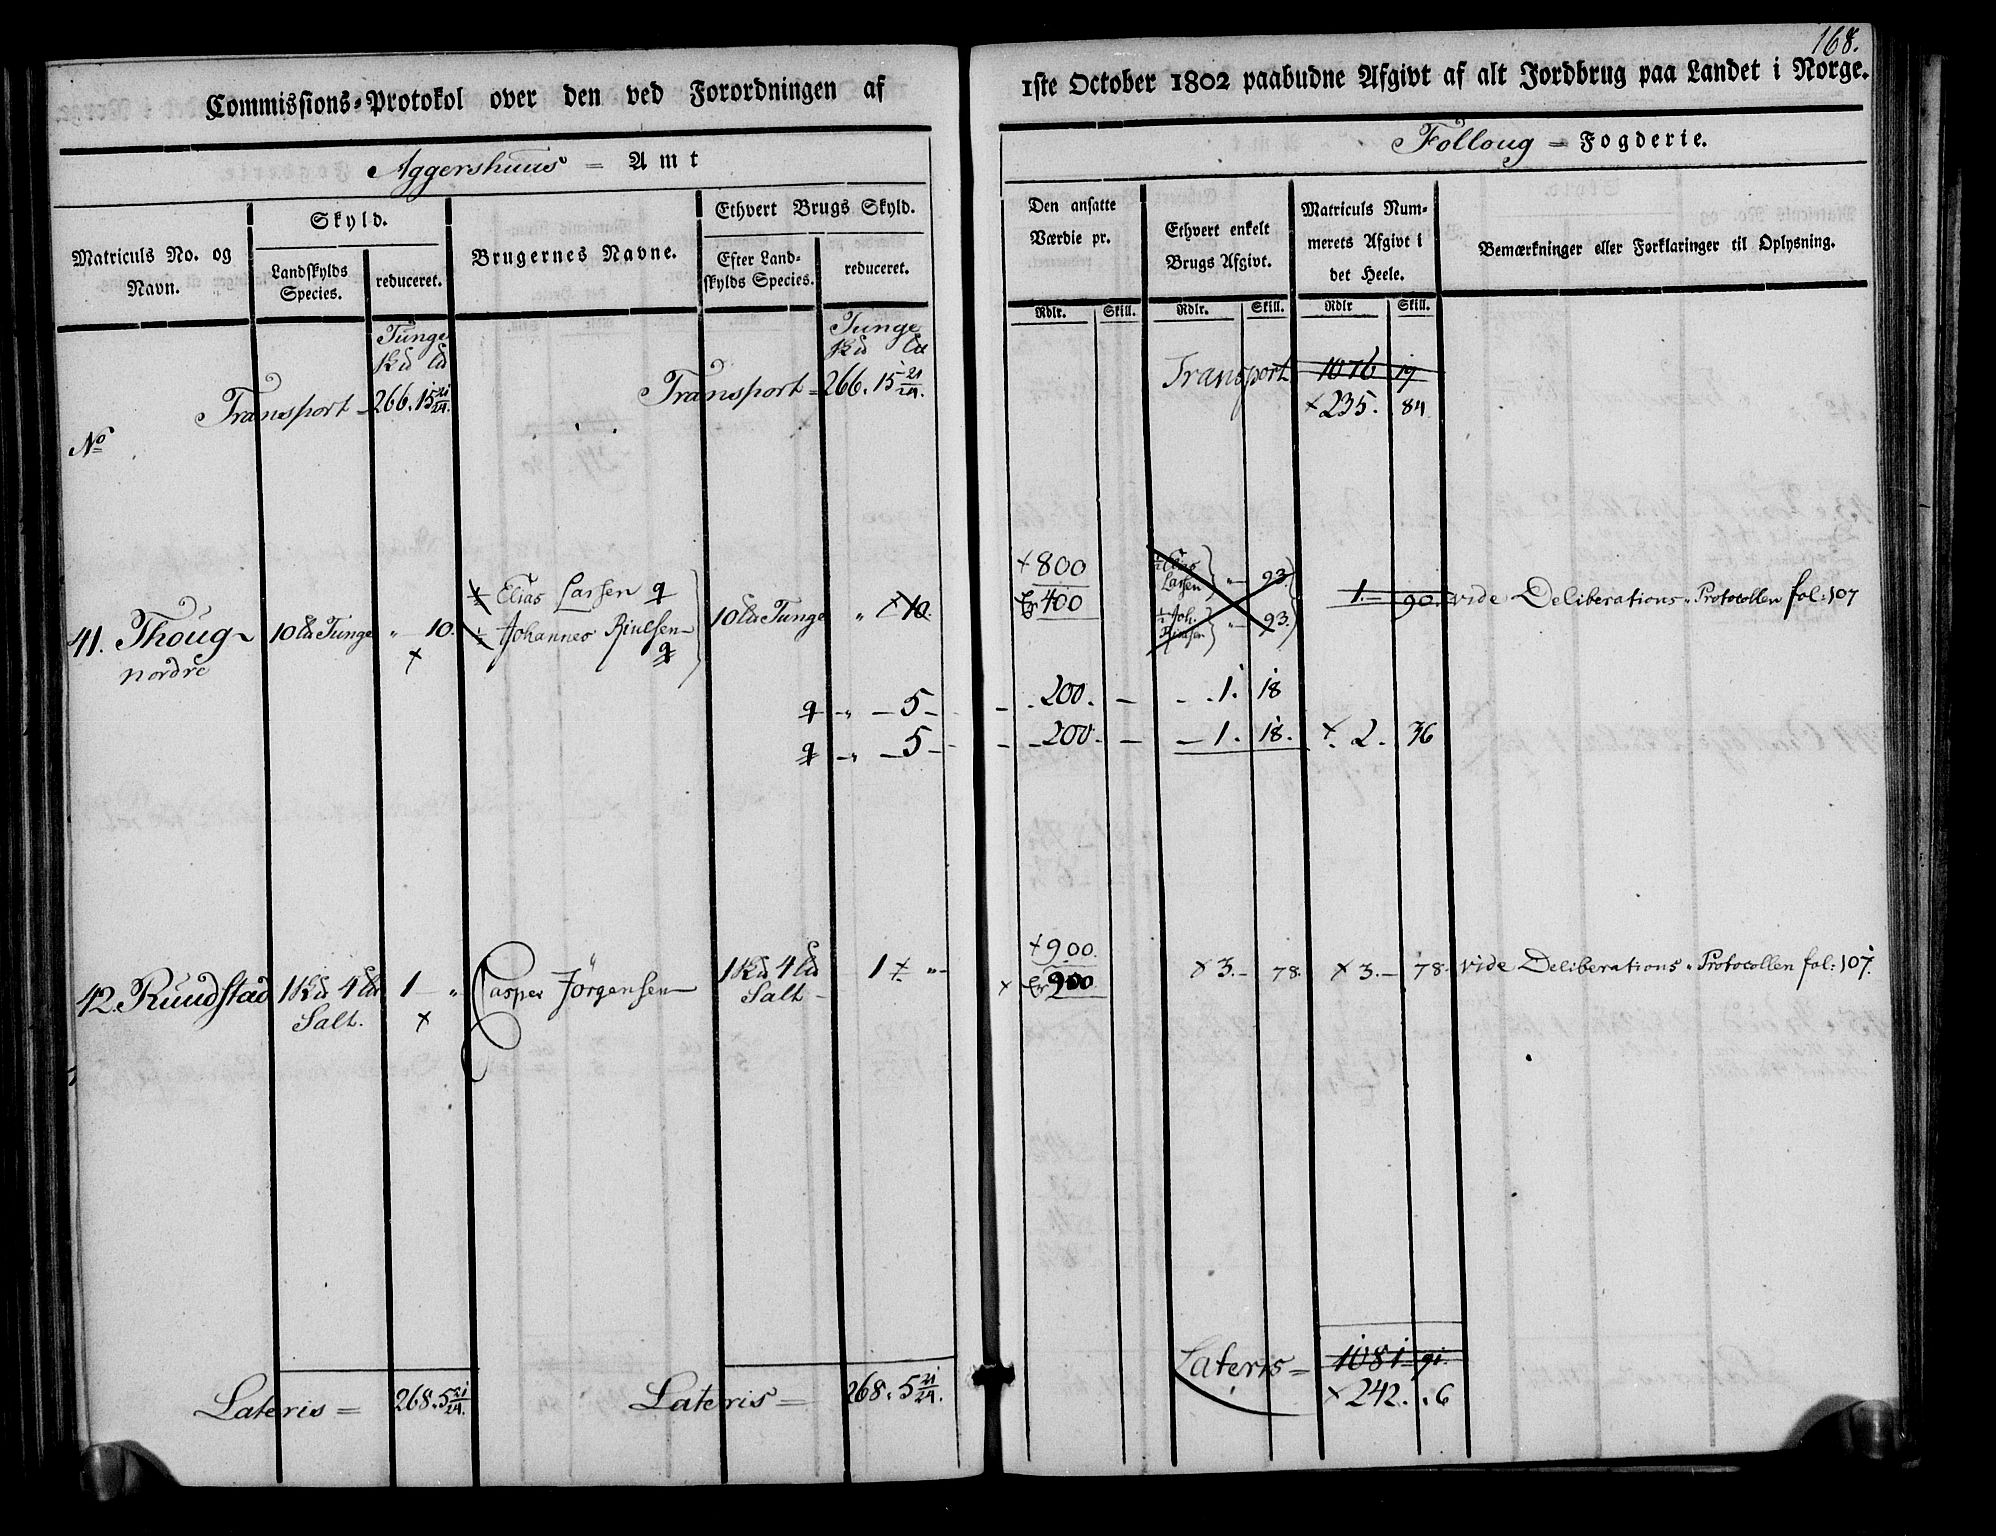 168.
Commissions-Protokol over den ved Forordningen af
1ste October 1802 paabudne Afgivt af alt Jordbrug paa Landet i Norge.
Aggershuus = Amt
Folloug = Fogderie.
Matriculs No. og Navn.
Skyld.
Landskylds Species.
reduceret.
Brugernes Navne.
Ethvert Brugs Skyld.
Efter Landskylds Species.
reduceret.
Den ansatte Værdie pr.
Ethvert enkelt Brugs Afgivt.
Matriculs Nummerets Afgivt i det Heele.
Bemærkninger eller Forklaringer til Oplysning.
Rdlr. Skill. Rdlr. Skill. Rdlr Skill.
Tunge Tunge
Transport - 266. 15 21/24. Transport = 266. 15 21/24. Transport 1076 19
× 235. 84
No
41. Thoug nordre 10 Tunge " 10. ×
½ Elias Larsen
½ Johannes
10 Tunge " × 10.
× 800
400
½ Elias Larsen " 93.
½ Joh. " 93.
1. 90. vide Deliberations Protocollen fol: 107
" — 5 — 200. — 1. 18
" — 5 — 200. — 1. 18. × 2. 36
42. Rundstad 1 4 Salt. 1 — " ×
Casper Jörgensen
1 4 Salt - 1 × "
× 900.
× 900
× 3. — 78. × 3. — 78. vide Deliberations Protocollen fol: 107.
Lateris = 268. 5 21/24. Lateris = 268. 5 21/24. Lateris = 1081 91.
× 242. . 6